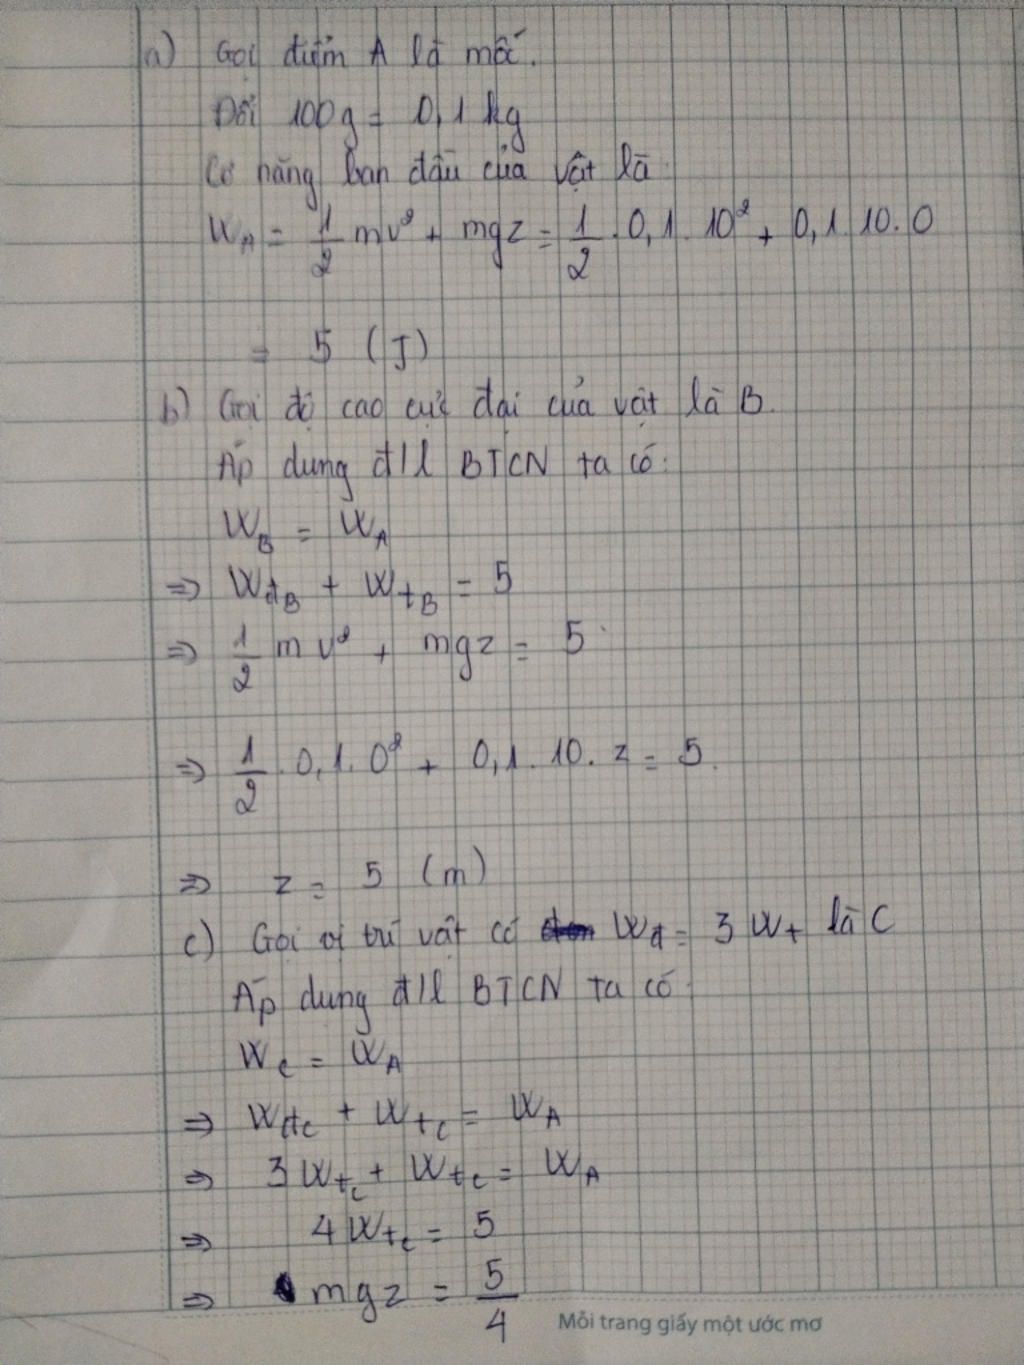 a) Gọi điểm A là mốc.
Đổi 100g = 0,1 kg
Cơ năng ban đầu của vật là
W_A = 1/2 mv² + mgz = 1/2 . 0,1 . 10² + 0,1 10. 0
= 5 (J)
b) Gọi độ cao cực đại của vật là B.
Áp dụng đ/l BTCN ta có:
W_B = W_A
=> W_đB + W_tB = 5
=> 1/2 m v² + mgz = 5
=> 1/2 . 0,1. 0² + 0,1. 10. z = 5.
=> z = 5 (m)
c) Gọi vị trí vật có W_đ = 3 W_t là C
Áp dụng đ/l BTCN ta có:
W_C = W_A
=> W_đC + W_tC = W_A
=> 3W_tC + W_tC = W_A
=> 4W_tC = 5
=> mgz = 5/4
Mỗi trang giấy một ước mơ